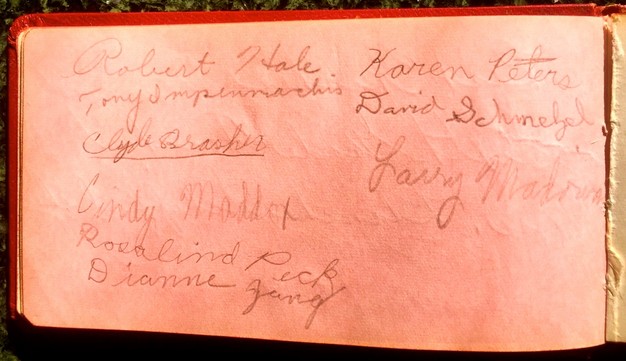 Robert Hale
Tony
Clyde Brasher
Cindy Maddox
Rosalind Peck
Dianne Yang
Karen Peters
David Schmehel
Larry